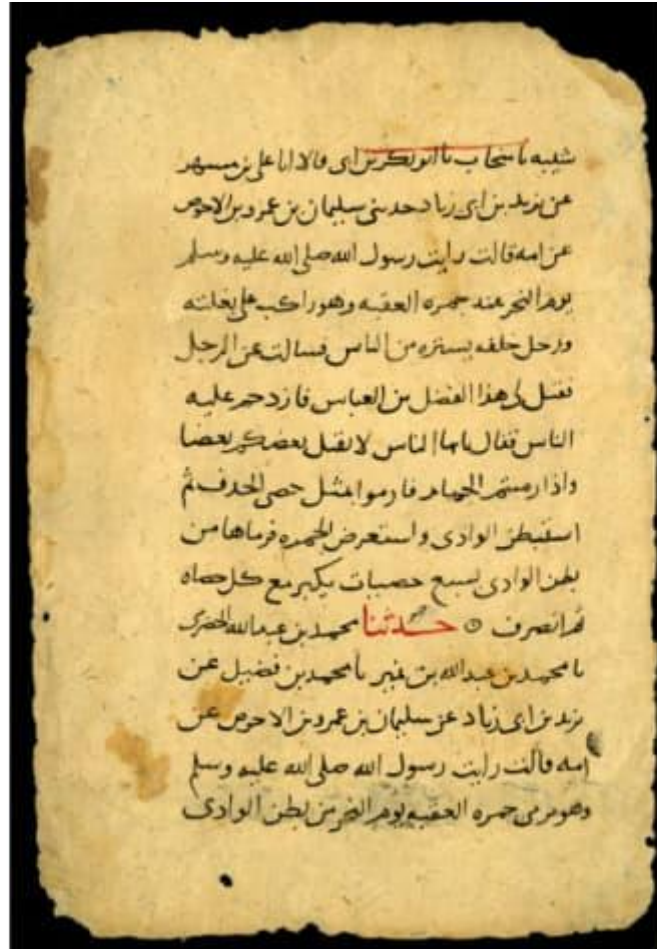 شيبه نا منجاب نا ابو بكر بن ابى قالا انا على بن مسهر
عن يزيد بن ابى زياد حدثنى سليمان بن عمرو بن الاحوص
عن امه قالت رايت رسول الله صلى الله عليه وسلم
يوم النحر عند جمره العقبه وهو راكب على بغلته
ورجل خلفه يستره من الناس فسالت عن الرجل
فقيل لى هذا الفضل بن العباس فازدحم عليه
الناس فقال يا ايها الناس لا يقتل بعضكم بعضا
واذا رميتم الجمار فارموا بمثل حصى الخذف ثم
استبطن الوادى واستعرض الجمره فرماها من
بطن الوادى بسبع حصيات يكبر مع كل حصاه
ثم انصرف ۞ حدثنا محمد بن عبد الله الحضرمى
نا محمد بن عبد الله بن نمير نا محمد بن فضيل عن
يزيد بن ابى زياد عن سليمان بن عمرو بن الاحوص عن
امه قالت رايت رسول الله صلى الله عليه وسلم
وهو يرمى جمره العقبه يوم النحر من بطن الوادى